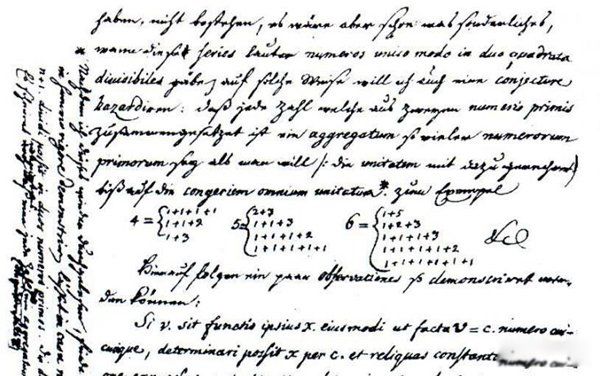 haben, nicht bestehen, es wäre aber schon was sonderliches,
wann diese series lauter numeros unico modo in duo quadrata
divisibiles gäbe, auf solche Weise will ich auch eine conjecture
hazardiren: daß jede Zahl welche aus zweyen numeris primis
zusammengesetzet ist ein aggregatum so vieler numerorum
primorum sey als man will /: die unitatem mit dazu gerechnet
biß auf die congeriem omnium unitatum*. zum Exempel
4 = { 1+1+1+1 5 = { 2+3 6 = { 1+5
1+1+2 1+1+3 1+2+3
1+3 1+1+1+2 1+1+1+3
1+1+1+1+1 1+1+1+1+2
1+1+1+1+1+1 &c
Hierauf folgen ein paar observationes so demonstriret wer-
den können:
Si v. sit functio ipsius x. eiusmodi ut facta v = c. numero cui-
cunque, determinari possit x per c. et reliquas constantes numero
* Nachdem ich dieses wieder durchgelesen, finde
in summo rigore demonstriren lässet in casu n
n+1. dividi possit in duos numeros primos. Die
Es scheinet wenigstens daß eine jede Zahl
aggregatum